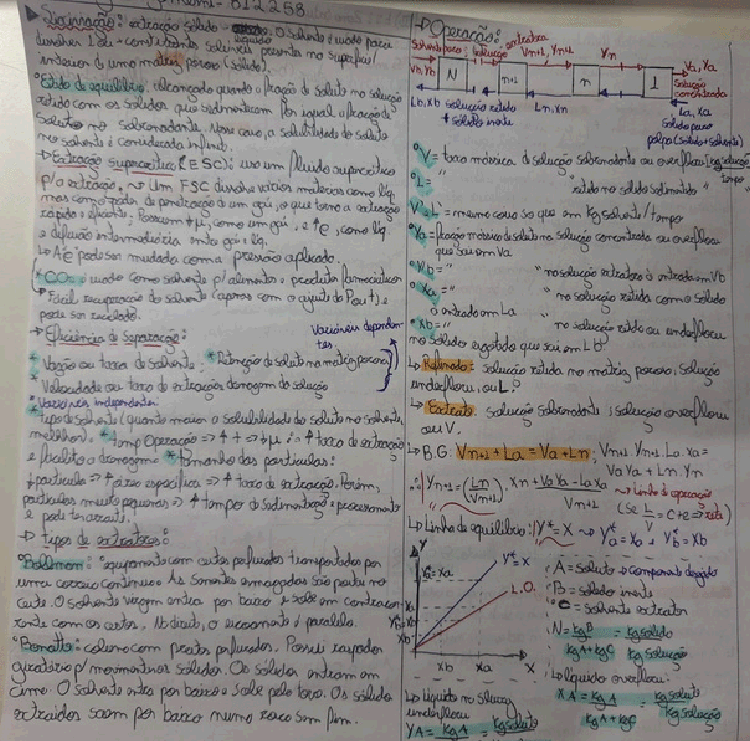 012258
Lixiviação: extração sólido - líquido. O solvente é usado para
dissolver 1 de + constituintes solúveis presente na superfície/
interior de uma matriz porosa (sólido).
Estado de equilíbrio: alcançado quando a fração de soluto na solução
retida com os sólidos que sedimentaram for igual a fração de
soluto no sobrenadante. Nesse caso, a solubilidade do soluto
no solvente é considerada infinita.
→ Extração supercrítica (ESC): usa um fluido supercrítico
p/ a extração. ~> Um FSC dissolve vários materiais como líq.
mas como poder de penetração de um gás, o que torna a extração
rápida e eficiente. Possuem ↓μ, como um gás, e ↑ρ, como líq.
e difusão intermediária entre gás e líq.
↳ A ρ pode ser mudada com a pressão aplicada.
* CO₂: é usado como solvente p/ alimentos e produtos farmacêuticos
↳ Fácil recuperação do solvente (apenas com o ajuste do P ou t) e
pode ser reciclado.
→ Eficiência de Separação:
Variáveis dependentes.
* Vazão ou taxa de solvente; * Retenção de soluto na matriz porosa;
* Velocidade ou taxa de extração e drenagem da solução
* Variáveis independentes:
* Tipo de solvente (quanto maior a solubilidade do soluto no solvente,
melhor). * Temp. Operação => ↑ t => ↓μ ∴ ↑ taxa de extração
e facilita a drenagem. * Tamanho das partículas:
↓ partícula => ↑ área específica => ↑ taxa de extração. Porém,
partículas muito pequenas => ↑ tempo de sedimentação e processamento
e pode ter arraste.
→ Tipos de extratores:
Bollmann: equipamento com cestas perfuradas transportadas por
uma correia contínua. As sementes esmagadas são postas no
cesto. O solvente virgem entra por baixo e sobe em contracor-
rente com os cestos. No direito, o escoamento é paralelo.
Bonotto: coluna com pratos perfurados. Possui raspador
giratório p/ movimentar sólidos. Os sólidos entram em
cima. O solvente entra por baixo e sobe pelo topo. Os sólidos
extraídos saem por baixo numa rosca sem fim.
→ Operação:
Solvente puro
solução extratora
Vn+1, Yn+1
Yn
Va, Ya
Solução concentrada
Vb, Yb
N
n+1
n
1
Lb, Xb
solução retida
+ sólido inerte
Ln, Xn
La, Xa
Sólido puro
polpa (sólido + solvente)
V = taxa mássica de solução sobrenadante ou overflow [kg solução/tempo
L = " " retida no sólido sedimentado "
V' e L' = mesma coisa só que em kg solvente/tempo
Ya = fração mássica de soluto na solução concentrada ou overflow
que sai em Va
Yb = " " na solução extratora à entrada em Vb
Xa = " " na solução retida com o sólido
à entrada em La
Xb = " na solução retida ou underflow
no sólido esgotado que sai em Lb
↳ Refinado: solução retida na matriz porosa; solução
underflow, ou L.
↳ Extrato: solução sobrenadante; solução overflow
ou V.
↳ B.G. Vn+1 + La = Va + Ln; Vn+1 Yn+1. La. Xa =
Va Ya + Ln. Yn
∴ Yn+1 = (Ln/Vn+1). Xn + Va Ya - La Xa/Vn+1 ~> Linha de operação
(Se L/V = cte => reta)
↳ Linha de equilíbrio: Y* = X ~> Ya* = Xa, Yb* = Xb
Y
Y* = X
L.O.
Xb
Xb
Xa
X
A = soluto → componente desejado
B = sólido inerte
C = solvente extrator
N = kg B/kg A + kg C = kg sólido/kg solução
↳ Líquido overflow:
XA = kg A/kg A + kg C = kg soluto/kg solução
↳ Líquido no slurry
underflow
YA = kg A = kg soluto